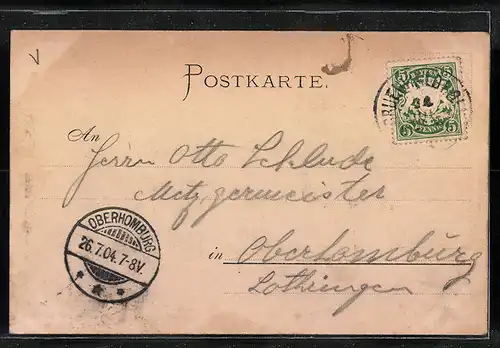 POSTKARTE.
5 5
BAYERN
5 PFENNIG 5
An
Herrn Otto Schlude
Metzgermeister
in Oberhomburg
Lothringen
OBERHOMBURG
26.7.04. 7-8V.